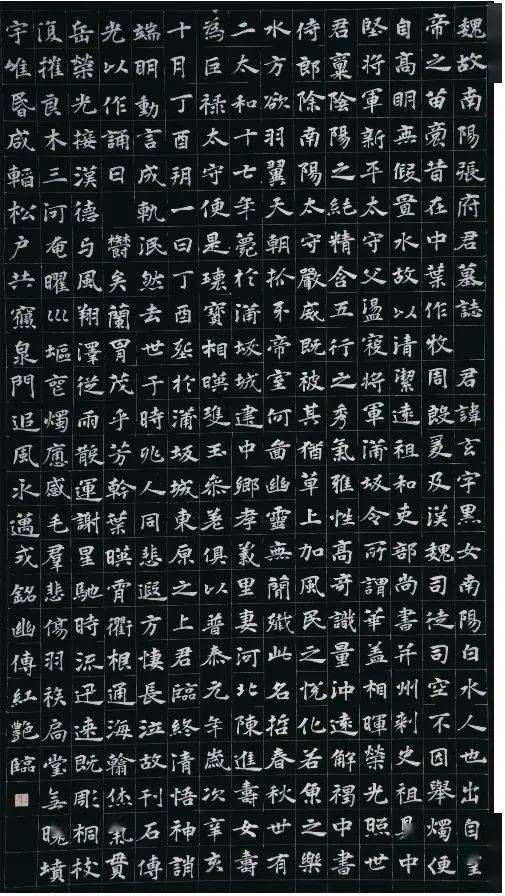 魏故南陽張府君墓誌 君諱玄字黑女南陽白水人也出自皇
帝之苗裔昔在中葉作牧周殷爰及漢魏司徒司空不因舉燭便
自高明無假置水故以清潔遠祖和吏部尚書并州刺史祖具中
堅將軍新平太守父盪寇將軍蒲坂令所謂華蓋相暉榮光照世
君稟陰陽之純精含五行之秀氣雅性高奇識量沖遠解褐中書
侍郎除南陽太守嚴威既被其猶草上加風民之悅化若魚之樂
水方欲羽翼天朝抓牙帝室何圖幽靈無簡殲此名哲春秋世有
二太和十七年薨於蒲坂城建中鄉孝義里妻河北陳進壽女壽
為巨祿太守便是瓌寶相暎瓊玉參差俱以普泰元年歲次辛亥
十月丁酉朔一日丁酉葬於蒲坂城東原之上君臨終清悟神誚
端明動言成軌泯然去世于時兆人同悲遐方悽長泣故刊石傳
光以作誦曰 鬱矣蘭胄茂乎芳幹葉暎霄衢根通海翰休氣貫
岳榮光接漢德与風翔澤從雨散運謝星馳時流迅速既彫桐枝
復摧良木三河奄曜巛塸燭應感毛羣悲傷羽族扃堂無曉墳
宇唯昏咸輼松戶共寢泉門追風永邁式銘幽傳紅艷臨